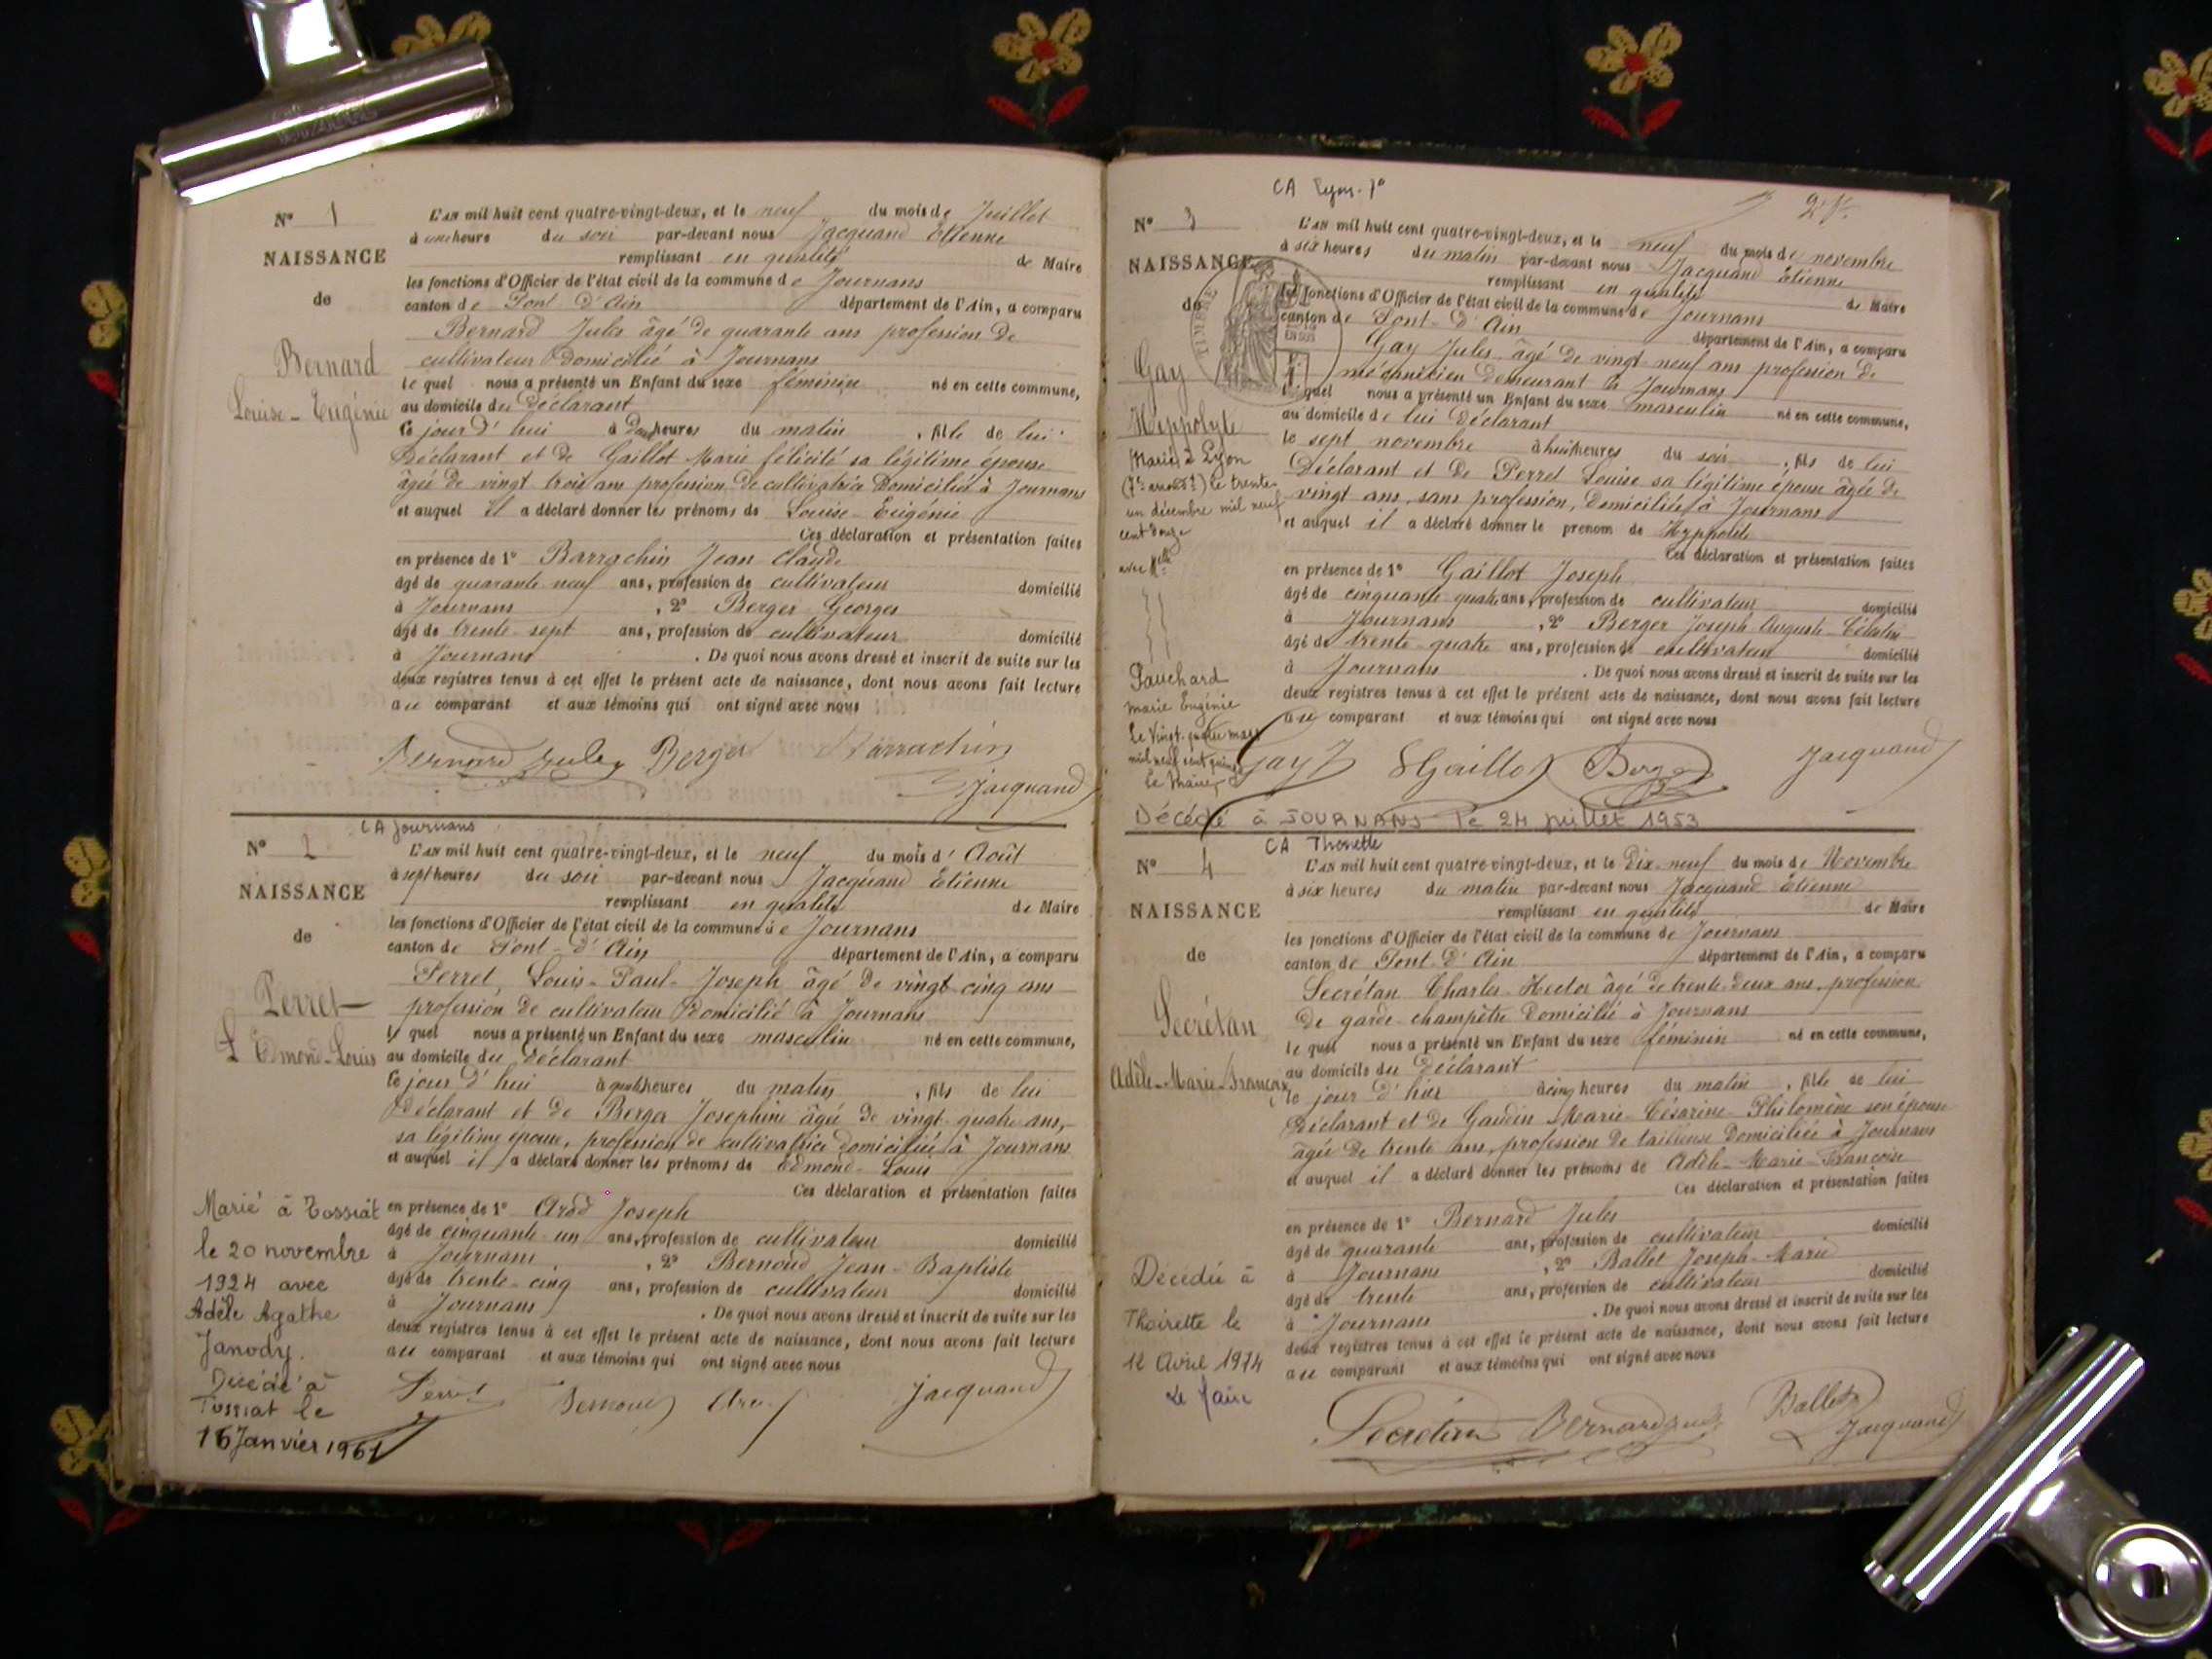 N° 1
L'AN mil huit cent quatre-vingt-deux, et le neuf du mois de Juillet
à une heure du soir par-devant nous Jacquand Etienne
NAISSANCE
remplissant en qualité de Maire
les fonctions d'Officier de l'état civil de la commune de Journans
de
canton de Pont-d'Ain département de l'Ain, a comparu
Bernard Jules âgé de quarante ans profession de
cultivateur domicilié à Journans
Bernard
le quel nous a présenté un Enfant du sexe féminin né en cette commune,
Louise-Eugénie
au domicile du déclarant
ce jour d'hui à heures du matin, fille de lui
Déclarant et de Gaillot Marie félicité sa légitime épouse
âgée de vingt trois ans profession de cultivatrice domiciliée à Journans
et auquel il a déclaré donner les prénoms de Louise-Eugénie
Ces déclaration et présentation faites
en présence de 1° Barrachin Jean Claude
âgé de quarante neuf ans, profession de cultivateur domicilié
à Journans, 2° Berger Georges
âgé de trente-sept ans, profession de cultivateur domicilié
à Journans. De quoi nous avons dressé et inscrit de suite sur les
deux registres tenus à cet effet le présent acte de naissance, dont nous avons fait lecture
au comparant et aux témoins qui ont signé avec nous
Bernard Jules Berger Barrachin
Jacquand
CA Journans
N° 2
L'AN mil huit cent quatre-vingt-deux, et le neuf du mois d'Août
à sept heures du soir par-devant nous Jacquand Etienne
NAISSANCE
remplissant en qualité de Maire
les fonctions d'Officier de l'état civil de la commune de Journans
de
canton de Pont-d'Ain département de l'Ain, a comparu
Perret, Louis-Paul-Joseph âgé de vingt-cinq ans
Perret
profession de cultivateur domicilié à Journans
le quel nous a présenté un Enfant du sexe masculin né en cette commune,
Edmond-Louis
au domicile du déclarant
ce jour d'hui à quatre heures du matin, fils de lui
déclarant et de Berger Josephine âgée de vingt-quatre ans,
sa légitime épouse, profession de cultivatrice domiciliée à Journans
et auquel il a déclaré donner les prénoms de Edmond-Louis
Ces déclaration et présentation faites
en présence de 1° Joseph
âgé de cinquante-un ans, profession de cultivateur domicilié
à Journans, 2° Bernoud Jean-Baptiste
âgé de trente-cinq ans, profession de cultivateur domicilié
à Journans. De quoi nous avons dressé et inscrit de suite sur les
deux registres tenus à cet effet le présent acte de naissance, dont nous avons fait lecture
au comparant et aux témoins qui ont signé avec nous
Perret Bernoud Jacquand
Marié à Tossiat
le 20 novembre
1924 avec
Adèle Agathe
Janody.
Décédé à
Tossiat le
16 Janvier 1961
CA Lyon-7°
N° 3
L'AN mil huit cent quatre-vingt-deux, et le neuf du mois de novembre
à six heures du matin par-devant nous Jacquand Etienne
NAISSANCE
remplissant en qualité de Maire
les fonctions d'Officier de l'état civil de la commune de Journans
de
TIMBRE
canton de Pont-d'Ain département de l'Ain, a comparu
Gay Jules âgé de vingt-neuf ans profession de
mécanicien demeurant à Journans
Gay
le quel nous a présenté un Enfant du sexe masculin né en cette commune,
au domicile de lui déclarant
Hippolyte
le sept novembre à huit heures du soir, fils de lui
Déclarant et de Perret Louise sa légitime épouse âgée de
vingt ans, sans profession, domiciliée à Journans
et auquel il a déclaré donner le prénom de Hyppolite
Ces déclaration et présentation faites
en présence de 1° Gaillot Joseph
âgé de cinquante-quatre ans, profession de cultivateur domicilié
à Journans, 2° Berger Joseph Auguste Célestin
âgé de trente-quatre ans, profession de cultivateur domicilié
à Journans. De quoi nous avons dressé et inscrit de suite sur les
deux registres tenus à cet effet le présent acte de naissance, dont nous avons fait lecture
au comparant et aux témoins qui ont signé avec nous
Gay J Gaillot Berger Jacquand
Marié à Lyon
(7e arrondt) le trente
un décembre mil neuf
cent douze
avec Melle
Pauchard
Marie Eugénie
Le Vingt-quatre mars
mil neuf cent quinze
Le Maire,
Décédé à JOURNANS le 24 juillet 1953
CA Thoirette
N° 4
L'AN mil huit cent quatre-vingt-deux, et le dix-neuf du mois de Novembre
à six heures du matin par-devant nous Jacquand Etienne
NAISSANCE
remplissant en qualité de Maire
les fonctions d'Officier de l'état civil de la commune de Journans
de
canton de Pont-d'Ain département de l'Ain, a comparu
Secrétan Charles-Hector âgé de trente-deux ans, profession
Secrétan
de garde-champêtre domicilié à Journans
le quel nous a présenté un Enfant du sexe féminin né en cette commune,
au domicile du déclarant
Adèle-Marie-Françoise
le jour d'hier à cinq heures du matin, fille de lui
Déclarant et de Gaudin Marie-Césarine-Philomène son épouse
âgée de trente ans, profession de tailleuse domiciliée à Journans
et auquel il a déclaré donner les prénoms de Adèle-Marie-Françoise
Ces déclaration et présentation faites
en présence de 1° Bernard Jules
âgé de quarante ans, profession de cultivateur domicilié
à Journans, 2° Ballet Joseph-Marie
âgé de trente ans, profession de cultivateur domicilié
à Journans. De quoi nous avons dressé et inscrit de suite sur les
deux registres tenus à cet effet le présent acte de naissance, dont nous avons fait lecture
au comparant et aux témoins qui ont signé avec nous
Secrétan Bernard Ballet
Jacquand
Décédée à
Thoirette le
12 Avril 1974